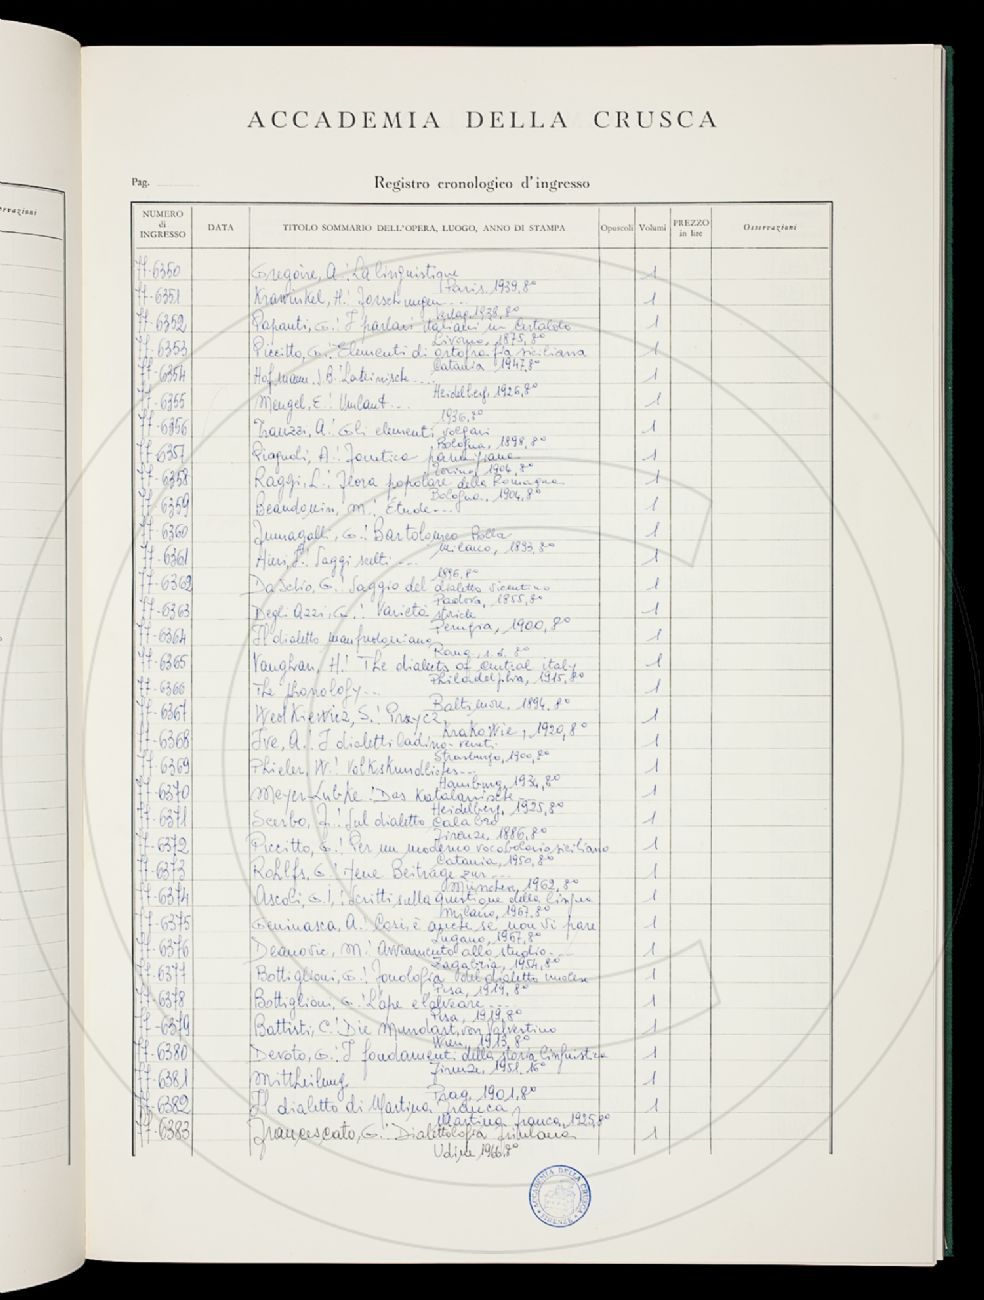 ACCADEMIA DELLA CRUSCA
Pag.
Registro cronologico d'ingresso
NUMERO di INGRESSO DATA TITOLO SOMMARIO DELL'OPERA, LUOGO, ANNO DI STAMPA Opuscoli Volumi PREZZO in lire Osservazioni
77-6350 Gregoire, A.: La linguistique 1
Paris, 1939, 8º
77-6351 Krawinkel, H.: Forschungen.... 1
1938, 8º
77-6352 Papanti, G.: I parlari italiani in Certaldo 1
Livorno, 1875, 8º
77-6353 Piccitto, G.: Elementi di ortografia siciliana 1
Catania 1947, 8º
77-6354 Hofmann J.B.: Lateinische.... 1
Heidelberg, 1926, 8º
77-6355 Mengel, E.: Umlaut... 1
1936, 8º
77-6356 Trauzzi, A.: Gli elementi volgari 1
Bologna, 1898, 8º
77-6357 Piagnoli, A.: Fonetica parmigiana 1
Torino, 1904, 8º
77-6358 Raggi, L.: Flora popolare della Romagna 1
Bologna, 1904, 8º
77-6359 Beaudouin, M.: Étude... 1
77-6360 Fumagalli, G.: Bartolomeo Bolla 1
Milano, 1893, 8º
77-6361 Saggi scelti... 1
1896, 8º
77-6362 Da Schio, G.: Saggio del dialetto vicentino 1
Padova, 1855, 8º
77-6363 Degli Azzi, G.: Varietà storiche 1
Perugia, 1900, 8º
77-6364 Il dialetto 1
Roma, s.d. 8º
77-6365 Vaughan, H.: The dialects of central italy 1
Philadelphia, 1915, 8º
77-6366 The phonology... 1
Baltimore, 1894, 8º
77-6367 Wedkiewicz, S.: 1
Krakowie, 1920, 8º
77-6368 Ive, A.: I dialetti ladino-veneti 1
Strasburgo, 1900, 8º
77-6369 Thieler, W.: Volkskundliches... 1
Hamburg, 1934, 8º
77-6370 Meyer-Lübke: Das Katalanische 1
Heidelberg, 1925, 8º
77-6371 Scerbo, F.: Sul dialetto calabro 1
Firenze, 1886, 8º
77-6372 Piccitto, G.: Per un moderno vocabolario siciliano 1
Catania, 1950, 8º
77-6373 Rohlfs, G.: Neue Beiträge zur... 1
München, 1962, 8º
77-6374 Ascoli, G.I.: Scritti sulla questione della lingua 1
Milano, 1967, 8º
77-6375 Geninasca, A.: Così è anche se non vi pare 1
Lugano, 1967, 8º
77-6376 Deanovic, M.: Avviamento allo studio... 1
Zagabria, 1954, 8º
77-6377 Bottiglioni, G.: Fonologia del dialetto imolese 1
Pisa, 1919, 8º
77-6378 Bottiglioni, G.: L'ape e l'alveare.... 1
Pisa, 1919, 8º
77-6379 Battisti, C.: Die Mundart von Valvestino 1
Wien, 1913, 8º
77-6380 Devoto, G.: I fondamenti della storia linguistica 1
Firenze, 1951, 16º
77-6381 Mittheilung 1
Prag, 1901, 8º
77-6382 Il dialetto di Martina Franca 1
Martina Franca, 1925, 8º
77-6383 Francescato, G.: Dialettologia friulana 1
Udine, 1966, 8º
ACCADEMIA DELLA CRUSCA
FIRENZE